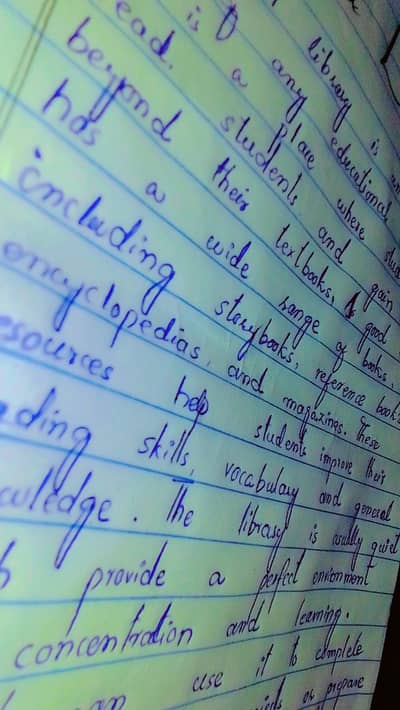 library is an
any educational
is a place where stud
ead. students and gain
beyond their textbooks, A good
has a wide range of books,
including storybooks, reference books
encyclopedias, and magazines. These
esources help students improve their
ading skills, vocabulary and general
wledge. The library is usually quiet
h provide a perfect environment
concentration and learning.
can use it to complete
or prepare